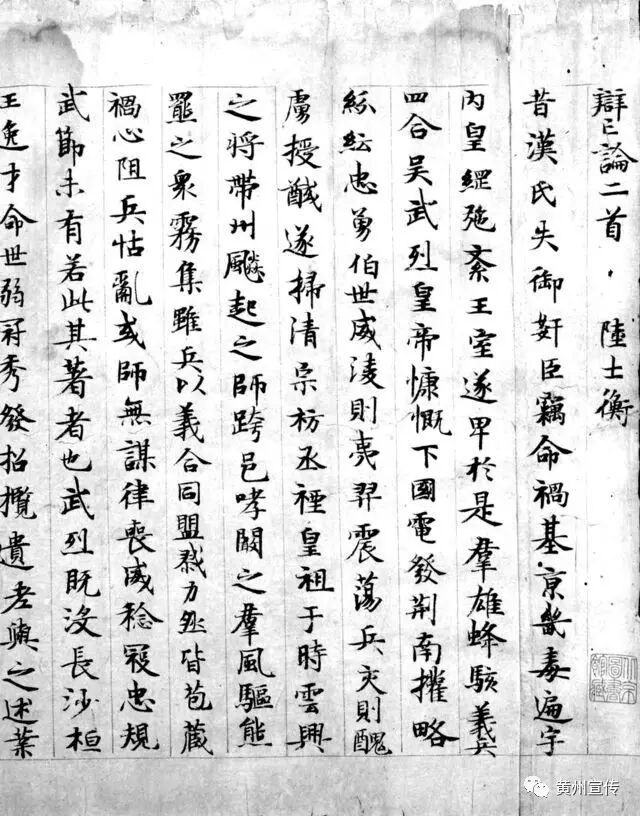 辯亡論二首 陸士衡
昔漢氏失御奸臣竊命禍基京畿毒遍宇
內皇綱弛紊王室遂卑於是羣雄蜂駭義兵
四合吴武烈皇帝慷慨下國電發荆南攉略
紛紜忠勇伯世威淩則夷羿震蕩兵交則醜
虜授馘遂掃清宗祊烝禋皇祖于時雲興
之將帶州飈起之師跨邑哮闞之羣風驅熊
羆之衆霧集雖兵以義合同盟戮力然皆苞藏
禍心阻兵怙亂或師無謀律喪威稔寇忠規
武節未有若此其著者也武烈既没長沙桓
王逸才命世弱冠秀發招攬遺老與之述業
黄州宣传